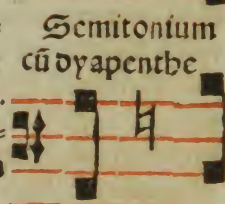 Semitonium
cū dyapenthe